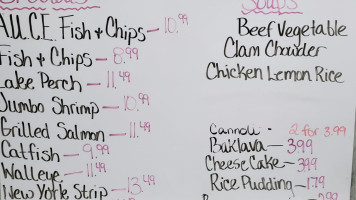 A.U.C.E. Fish + Chips - 10.99
Fish + Chips - 8.99
Lake Perch - 11.49
Jumbo Shrimp - 10.99
Grilled Salmon - 11.49
Catfish - 9.99
Walleye - 11.49
New York Strip - 13.49
Soups
Beef Vegetable
Clam Chowder
Chicken Lemon Rice
Cannoli - 2 for 3.99
Baklava - 3.99
Cheese Cake - 3.99
Rice Pudding - 1.79
2.99